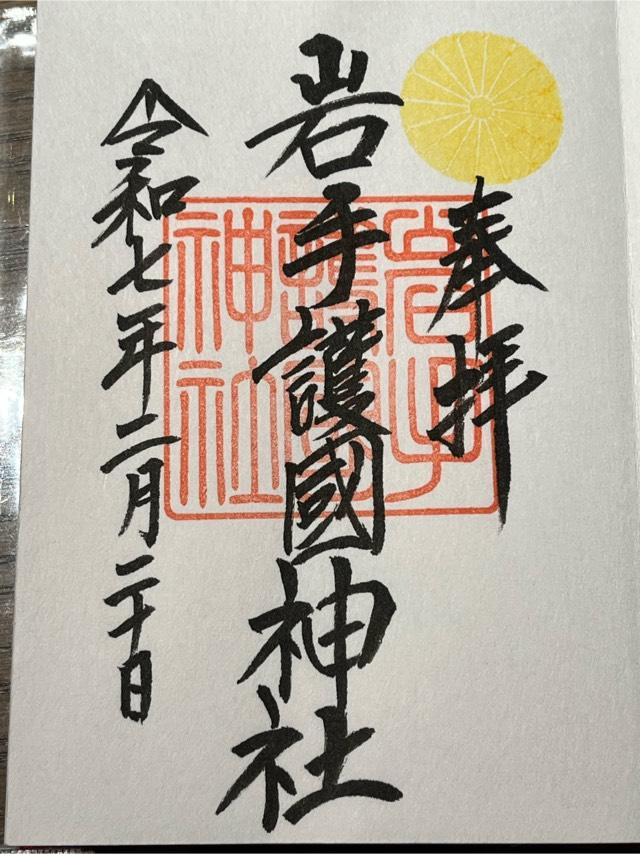 奉拝
岩手護國神社
令和七年二月二十日
岩手
護國
神社